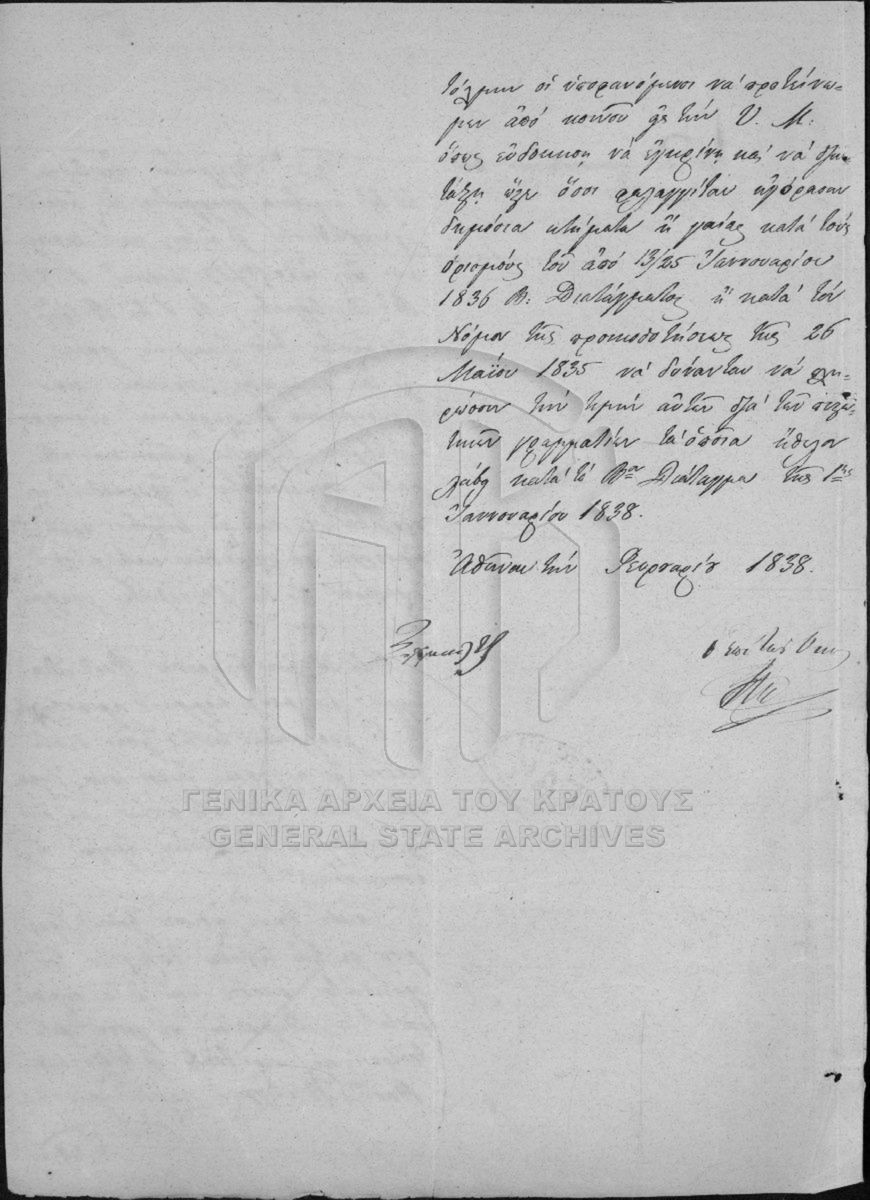 τόλμην οἱ ὑποφαινόμενοι νὰ προτείνω-
μεν ἀπὸ κοινοῦ εἰς τὴν Υ. Μ.
ὅπως εὐδοκήσῃ νὰ ἐγκρίνῃ καὶ νὰ δια-
τάξῃ ὥστε ὅσοι φαλαγγῖται ἠγόρασαν
δημόσια κτήματα ἢ γαίας κατὰ τοὺς
ὁρισμοὺς τοῦ ἀπὸ 13/25 Ἰαννουαρίου
1836 Β: Διατάγματος ἢ κατὰ τὸν
Νόμον τῆς προικοδοτήσεως τῆς 26
Μαΐου 1835 νὰ δύνανται νὰ πλη-
ρώσουν τὴν τιμὴν αὐτῶν διὰ τῶν πιστω-
τικῶν γραμματίων τὰ ὁποῖα ἤθελον
λάβῃ κατὰ τὸ Βον Διάταγμα τῆς 1ης
Ἰαννουαρίου 1838.
Ἀθῆναι τὴν Φεβρουαρίου 1838.
ὁ ἐπὶ τῶν Οικ
ΓΕΝΙΚΑ ΑΡΧΕΙΑ ΤΟΥ ΚΡΑΤΟΥΣ
GENERAL STATE ARCHIVES